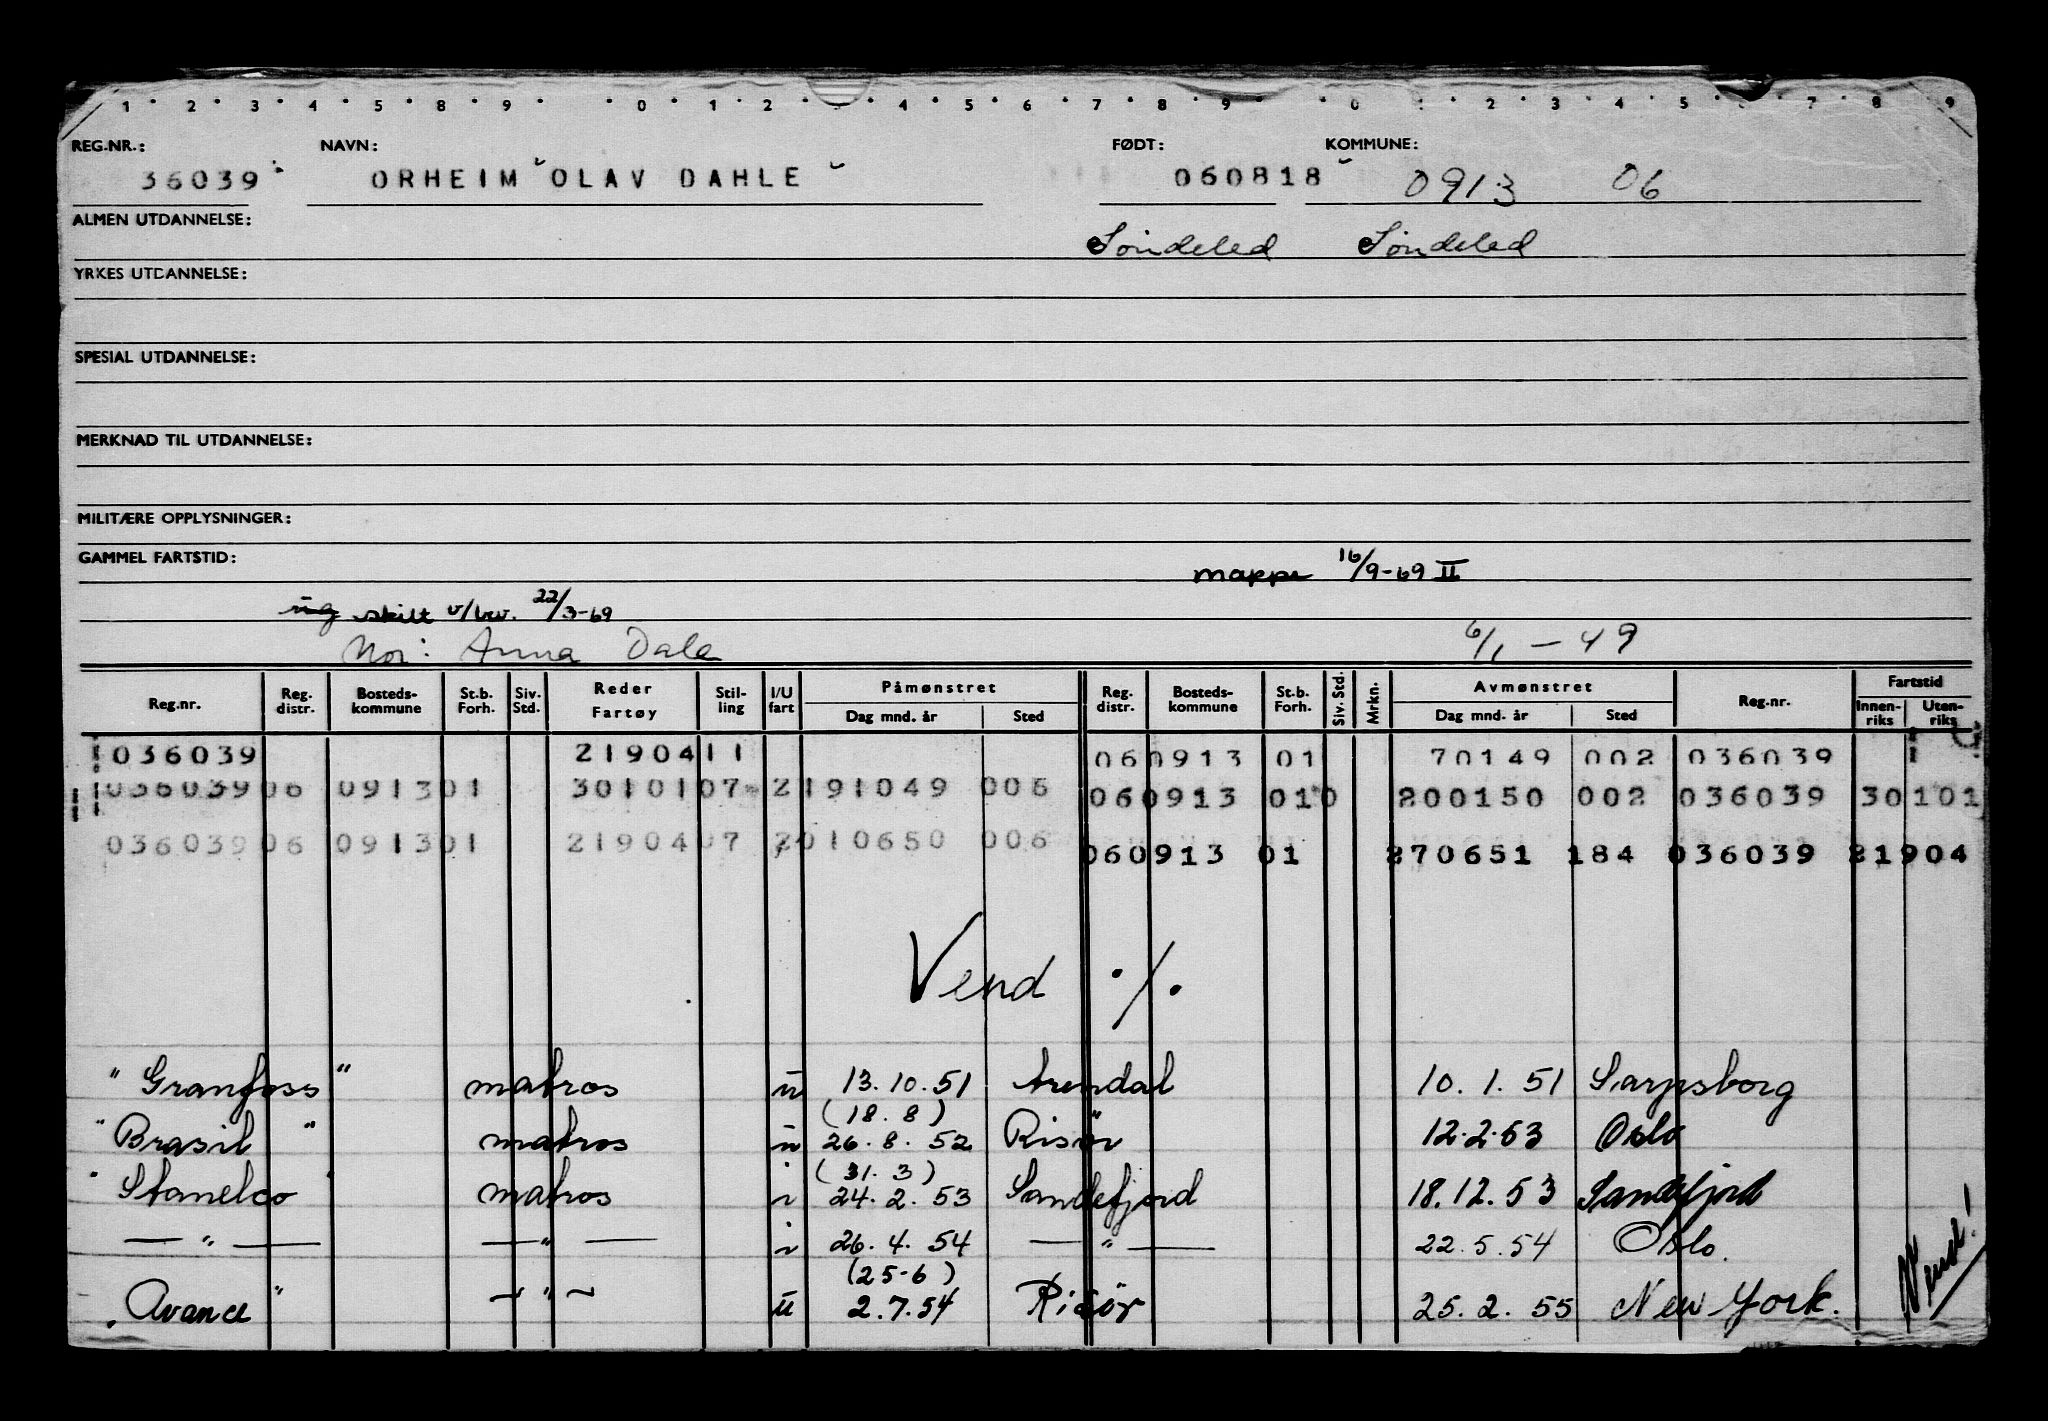 1 · 2 · 3 · 4 · 5 · 6 · 7 · 8 · 9 · 0 · 1 · 2 · 4 · 5 · 6 · 7 · 8 · 9 · 0 · 2 · 3 · 4 · 5 · 7 · 8 · 9
REG.NR.: NAVN: FØDT: KOMMUNE:
36039 ORHEIM OLAV DAHLE 060818 0913 06
ALMEN UTDANNELSE: Söndeled Söndeled
YRKES UTDANNELSE:
SPESIAL UTDANNELSE:
MERKNAD TIL UTDANNELSE:
MILITÆRE OPPLYSNINGER:
GAMMEL FARTSTID: mappe 16/9-69 II
ug skilt v/bev. 22/3-69
Mor: Anna Dale 6/1 - 49
Reg.nr. Reg. distr. Bosteds-kommune St.b. Forh. Siv. Std. Reder Fartøy Stil-ling I/U fart Påmønstret Dag mnd. år Sted Reg. distr. Bosteds-kommune St.b. Forh. Siv. Std. Mrkn. Avmønstret Dag mnd. år Sted Reg.nr. Fartstid Innen-riks Uten-riks
036039 2190411 060913 01 70149 002 036039
036039 06 0913 01 3010107 2 191049 006 060913 010 200150 002 036039 30101
036039 06 0913 01 2190407 2 010650 006 060913 01 270651 184 036039 21904
Vend ·/.
"Granfoss" matros u 13.10.51 Arendal 10.1.51 Sarpsborg
(18.8)
"Brasil" matros u 26.8.52 Risör 12.2.53 Oslo
(31.3)
"Stanelco" matros i 24.2.53 Sandefjord 18.12.53 Sandefjord
— " — — " — i 26.4.54 — " — 22.5.54 Oslo.
(25-6)
"Avance" — " — u 2.7.54 Risör 25.2.55 New York.
Vend!